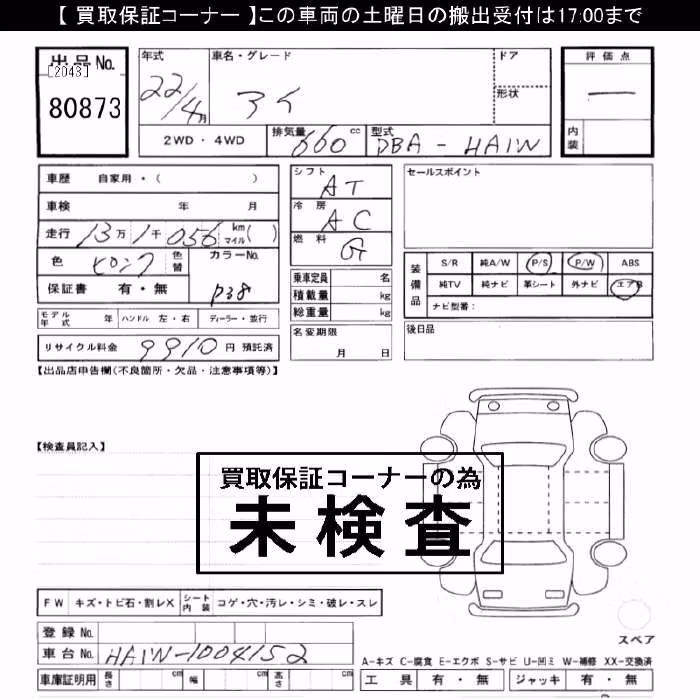 【 買取保証コーナー 】この車両の土曜日の搬出受付は17:00まで
出品No.
[2043]
80873
年式 22/4月
車名・グレード アイ
ドア
形状
評価点 —
内装
2WD・4WD
排気量 660 cc
型式 DBA-HA1W
車歴 自家用・( )
車検 年 月
走行 13万1千056 km マイル( )
色 ピンク 色替
カラーNo. P38
保証書 有・無
シフト AT
冷房 AC
燃料 G
乗車定員 名
積載量 kg
総重量 kg
名変期限 月 日
セールスポイント
装備品
S/R 純A/W P/S P/W ABS
純TV 純ナビ 革シート 外ナビ エアB
ナビ型番:
後日品
モデル年式 年 ハンドル 左・右 ディーラー・並行
リサイクル料金 9910 円 預託済
【出品店申告欄(不良箇所・欠品・注意事項等)】
【検査員記入】
買取保証コーナーの為
未検査
FW キズ・トビ石・割レX シート内装 コゲ・穴・汚レ・シミ・破レ・スレ
スペア
登録No.
車台No. HA1W-1004152
車庫証明用 長さ cm 幅 cm 高さ cm
A-キズ C-腐食 E-エクボ S-サビ U-凹ミ W-補修 XX-交換済
工具 有・無 ジャッキ 有・無